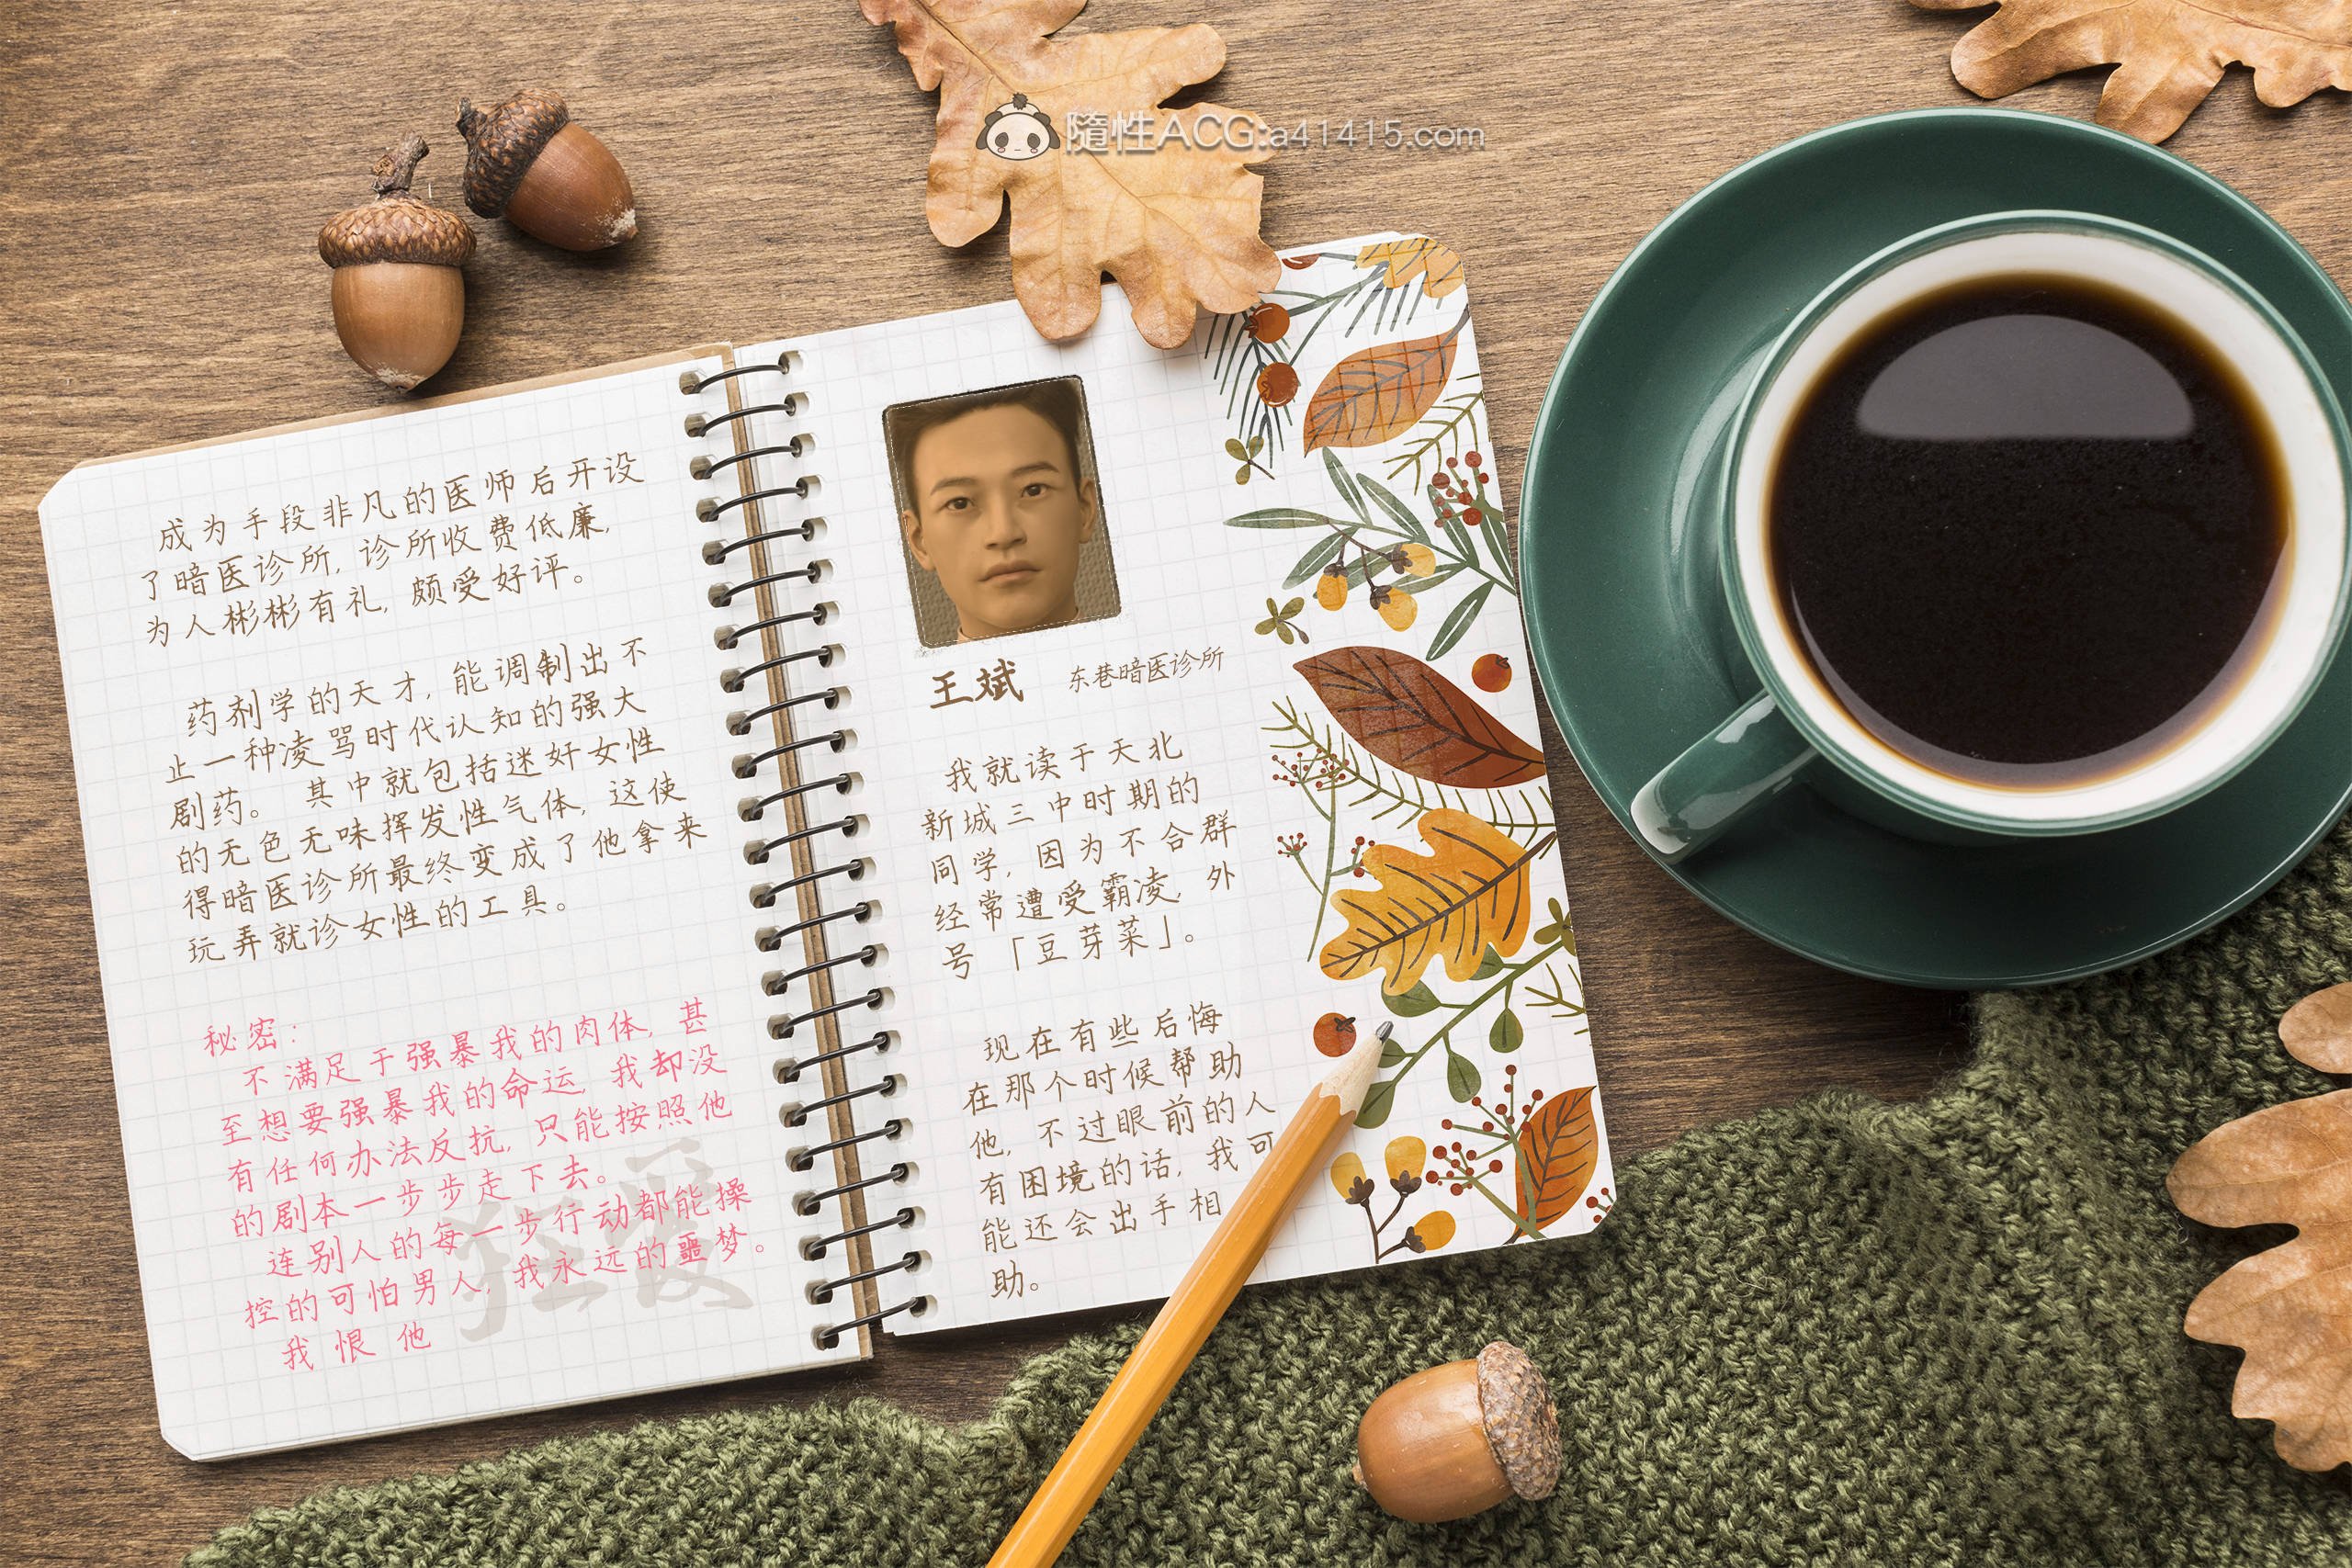 隨性ACG:a41415.com
成为手段非凡的医师后开设
了暗医诊所,诊所收费低廉,
为人彬彬有礼,颇受好评。
药剂学的天才,能调制出不
止一种凌骂时代认知的强大
剧药。 其中就包括迷奸女性
的无色无味挥发性气体,这使
得暗医诊所最终变成了他拿来
玩弄就诊女性的工具。
秘密:
不满足于强暴我的肉体,甚
至想要强暴我的命运,我却没
有任何办法反抗,只能按照他
的剧本一步步走下去。
连别人的每一步行动都能操
控的可怕男人,我永远的噩梦。
我恨他
狂爱
王斌 东巷暗医诊所
我就读于天北
新城三中时期的
同学,因为不合群
经常遭受霸凌,外
号「豆芽菜」。
现在有些后悔
在那个时候帮助
他,不过眼前的人
有困境的话,我可
能还会出手相
助。